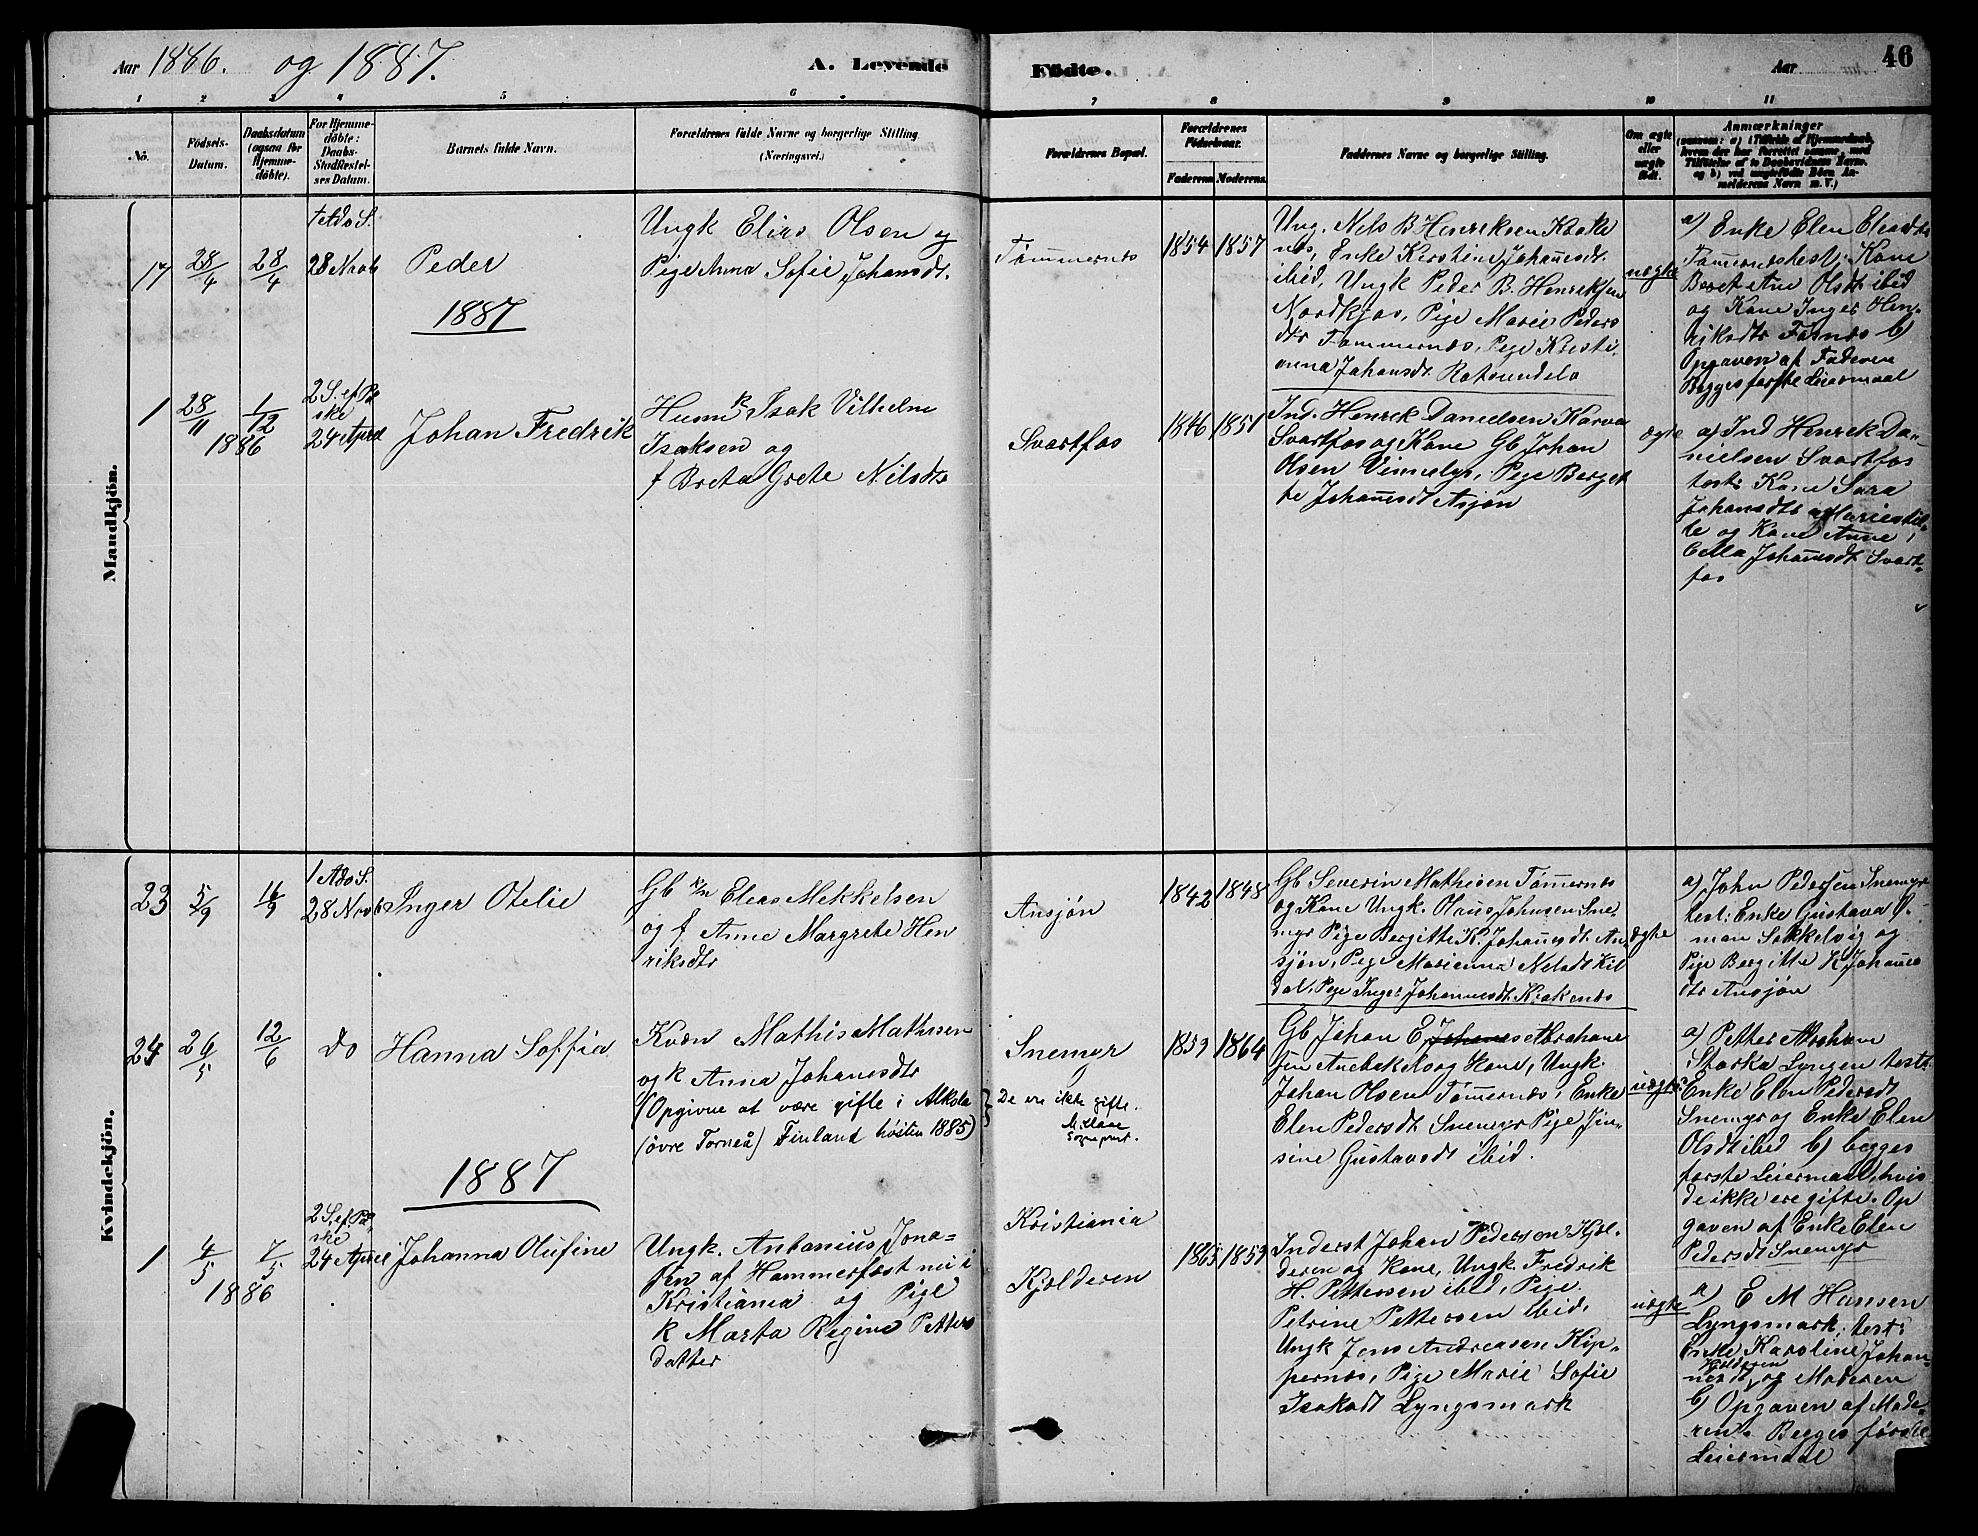 Aar 1886. og 1887.
A. Levende Födte.
Aar
46
1 2 3 4 5 6 7 8 9 10 11
No.
Födsels-
Datum.
Daabsdatum
(ogsaa for
Hjemme-
döbte).
For Hjemme-
döbte:
Daabs-
Stadfestel-
ses Datum.
Barnets fulde Navn.
Forældrenes fulde Navne og borgerlige Stilling.
(Næringsvei.)
Forældrenes Bopæl.
Forældrenes
Födselsaar.
Faderens. Moderens.
Faddernes Navne og borgerlige Stilling.
Om ægte
eller
uægte
födt.
Anmærkninger
(saasom: a) i Tilfælde af Hjemmedaab,
hvem der har forrettet samme, med
Tilföielse af to Daabsvidners Navne
og b) ved uægtefödte Börn An-
melderens Navn m. V.)
Mandkjön.
17
28/4
28/4
28 Novb
Peder
1887
Ungk Elias Olsen og
Pige Anna Sofie Johansdt.
Tømmernes
1854 1857
Ung. Nils B Henriksen Krake
nes, Enke Kirstine Johannesdt.
ibid, Ungk Peder B. Henriksen
Nordkjos, Pige Marie Peders
dtr Tømmernes, Pige Kristi,
anna Johansdt.
uægte
a) Enke Elen
test. Kane
Beret Ane Olsdtr ibid
og Kone Inger Hen-
riksdtr b)
Opgaven af Faderen
Begges første Leiermaal
1
28/11
1/12
1886
2 S. ef. Pa
ske
24 April
Johan Fredrik
Husm k Isak Vilhelm
Isaksen og
f Breta Grete Nilsdtr
Svartfos
1846 1851
Ind. Henrik Danielsen
Svartfos og Kone Gb Johan
Olsen Vinnelys, Pige Berget
te Johannesdt Asjøn
ægte
a) Ind Henrik Da-
nielsen Svartfos
test: Kone Sara
Johansdtr
og Kone Anne
Johannesdt Svart-
fos
Kvindekjön.
23
5/9
16/9
1 Adv S.
28 Novb
Inger Otelie
Gb k/n Elias Mekkelsen
og f Anne Margrete Hen
riksdtr
Ansjøn
1842 1848
Gb Severin Mathisen Tømmernes
og Kone Ungk. Olaus Johnsen Sne-
myr Pige Bergitte K. Johannesdt. An-
sjøn, Pige Marianna Nilsdt Kil
dal, Pige Inger Johannesdt. Krakenes
ægte
a) John Pedersen Snemyr
test: Enke Gustava Ø.
man Sokkelvig og
Pige Bergitte K Johannes
dtr Ansjøn
24
26/5
12/6
do
Hanna Soffia
Kvæn Mathis Mathisen
og k Anna Johannesdtr
(Opgivne at være gifte i Alkola
(övre Torneå) Finland høsten 1885)
Snemyr
De ere ikke gifte.
M. Klaue
Sognepræst.
1853 1864
Gb Johan E Johanes Abraham
sen og Kone, Ungk.
Johan Olsen Tømmernes, Enke
Elen Pedersdt Snemyr Pige Jen-
sine Gustavsdt ibid.
uægte
a) Petter Abraham
Storka Lyngen test:
Enke Elen Pedersdt
Snemyr og Enke Elen
Olsdt ibid b) begges
første Leiermaal, hvis
de ikke ere gifte. Op
gaven af Enke Elen
Pedersdt Snemyr
1887
1
4/5
7/5
1886
2 S. ef. Paa
ske
24 April
Johanna Olufine
Ungk. Antonius Jona-
sen af Hammerfest nu i
Kristiania og Pige
k Marta Regine Petters
datter
Kristiania
Kjolderen
1863 1853
Inderst Johan Pedersen Kjol-
deren og Kone, Ungk. Fredrik
H. Pettersen ibid, Pige
Petrine Pettersen ibid,
Ungk Jens Andreasen Kip-
pernes, Pige Marie Sofie
Isaksdt Lyngsmark
uægte
a) E M Hansen
Lyngsmark, test:
Enke Karoline Johan-
nesdt Kjolderen og Moderen
b) Opgaven af Mode-
ren. Begges første
Leiermaal